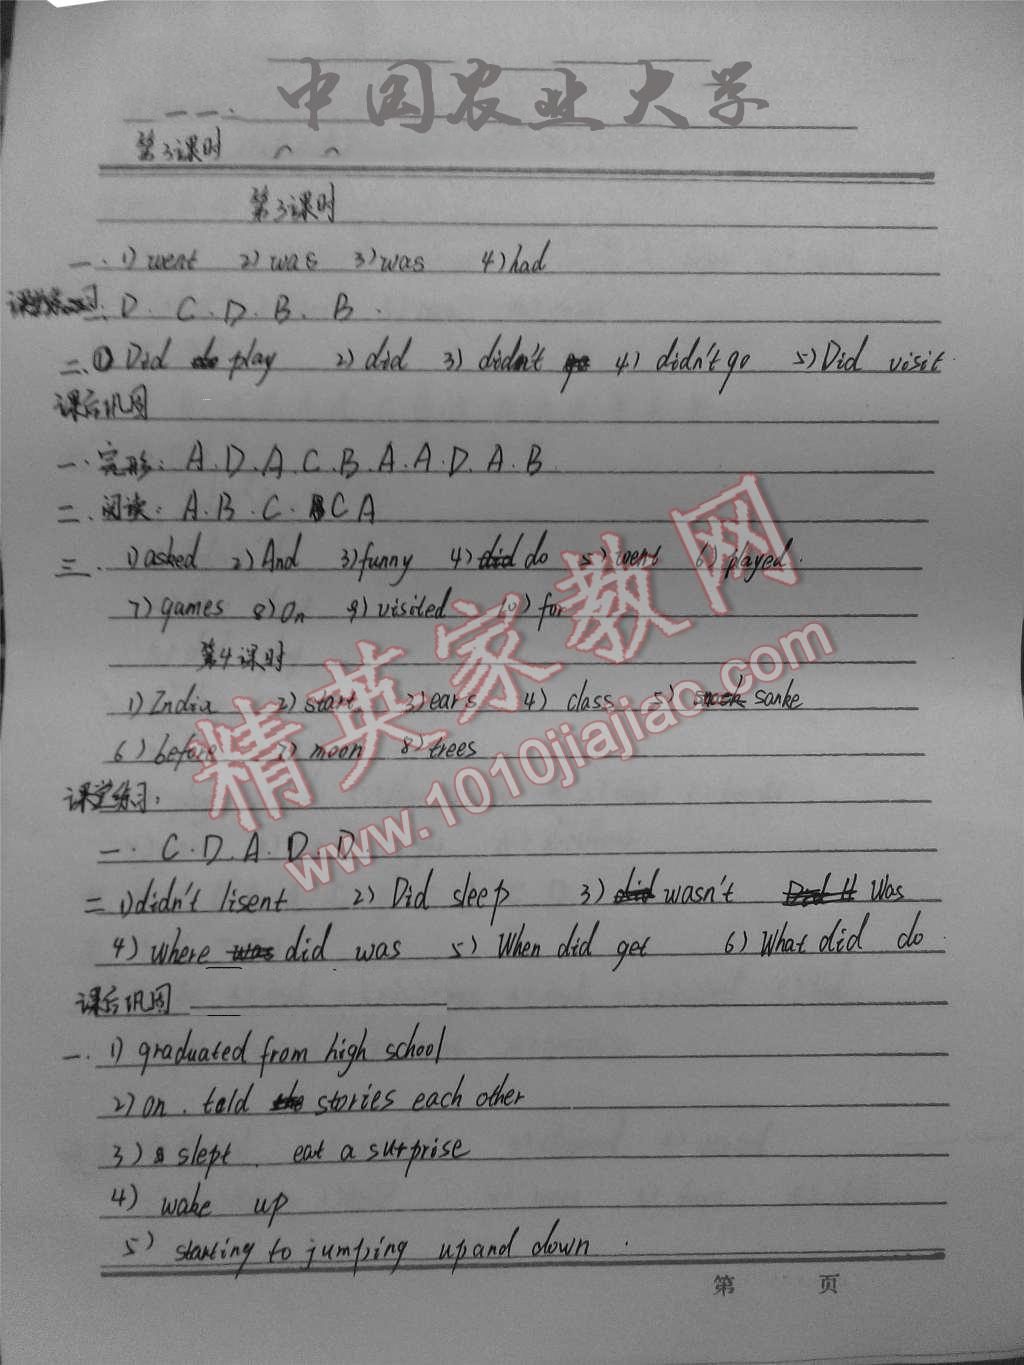 中国农业大学
一一.
第3课时
第3课时
一. 1) went 2) was 3) was 4) had
课堂练习. D. C. D. B. B.
二. ① Did play 2) did 3) didn't 4) didn't go 5) Did visit.
课后巩固
一. 完形: A. D. A. C. B. A. A. D. A. B.
二. 阅读: A. B. C. C A
三. 1) asked 2) And 3) funny 4) do 5) went 6) played.
7) games 8) On 9) visited 10) for
第4课时
1) India 2) start 3) ears 4) class 5) sanke
6) before 7) moon 8) trees
课堂练习:
一. C. D. A. D. D.
二 1) didn't lisent 2) Did sleep 3) wasn't Was
4) where did was 5) When did get 6) What did do.
课后巩固
一. 1) graduated from high school
2) on. told stories each other
3) slept. eat a surprise
4) wake up
5) starting to jumping up and down.
第 页
精英家教网
www.1010jiajiao.com